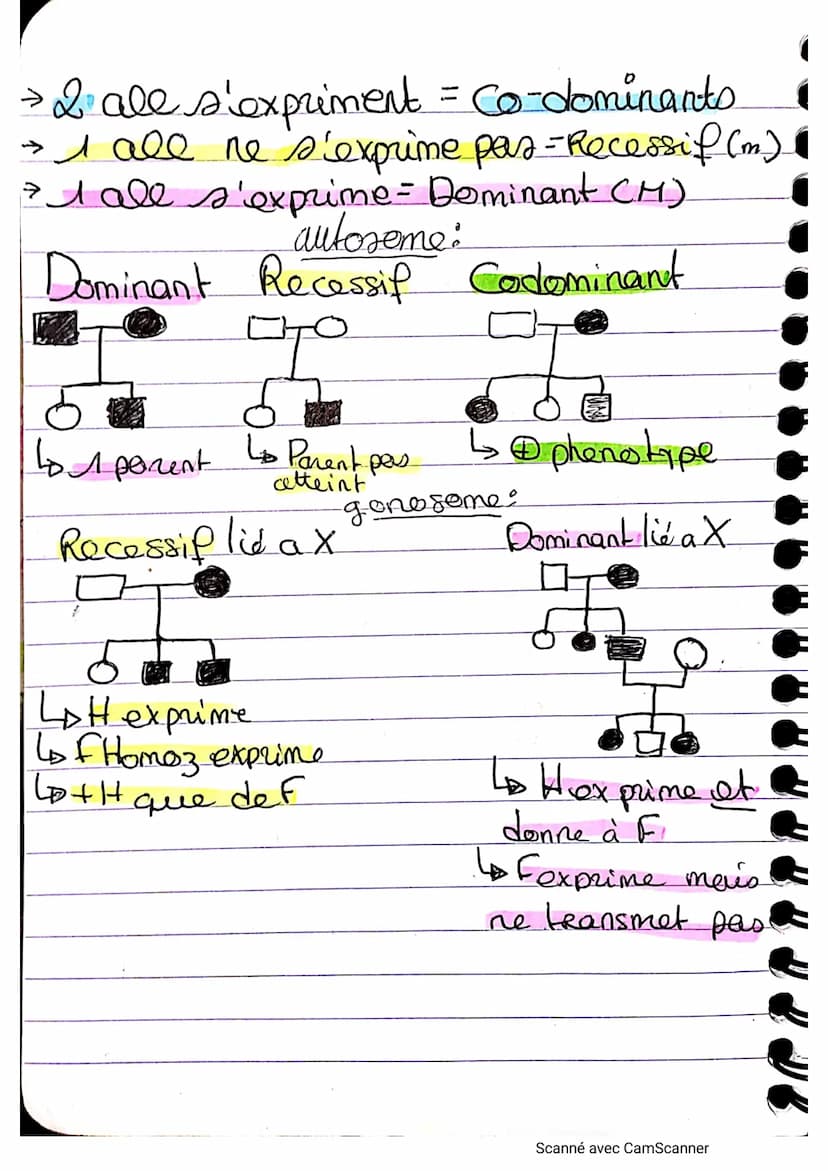 → 2 alle s'expriment = Co-dominants
→ 1 all ne s'exprime pas = Recessif (m)
→ 1 all s'exprime = Dominant (M)
autosome:
Dominant Recessif Codominant
↳ 1 parent ↳ Parent pas atteint ↳ ⊕ phenotype
gonosome:
Recessif lié a X Dominant lié a X
↳ H exprime
↳ f Homoz exprime
↳ + H que de F
↳ H exprime et
donne à F
↳ F exprime mais
ne transmet pas
Scanné avec CamScanner